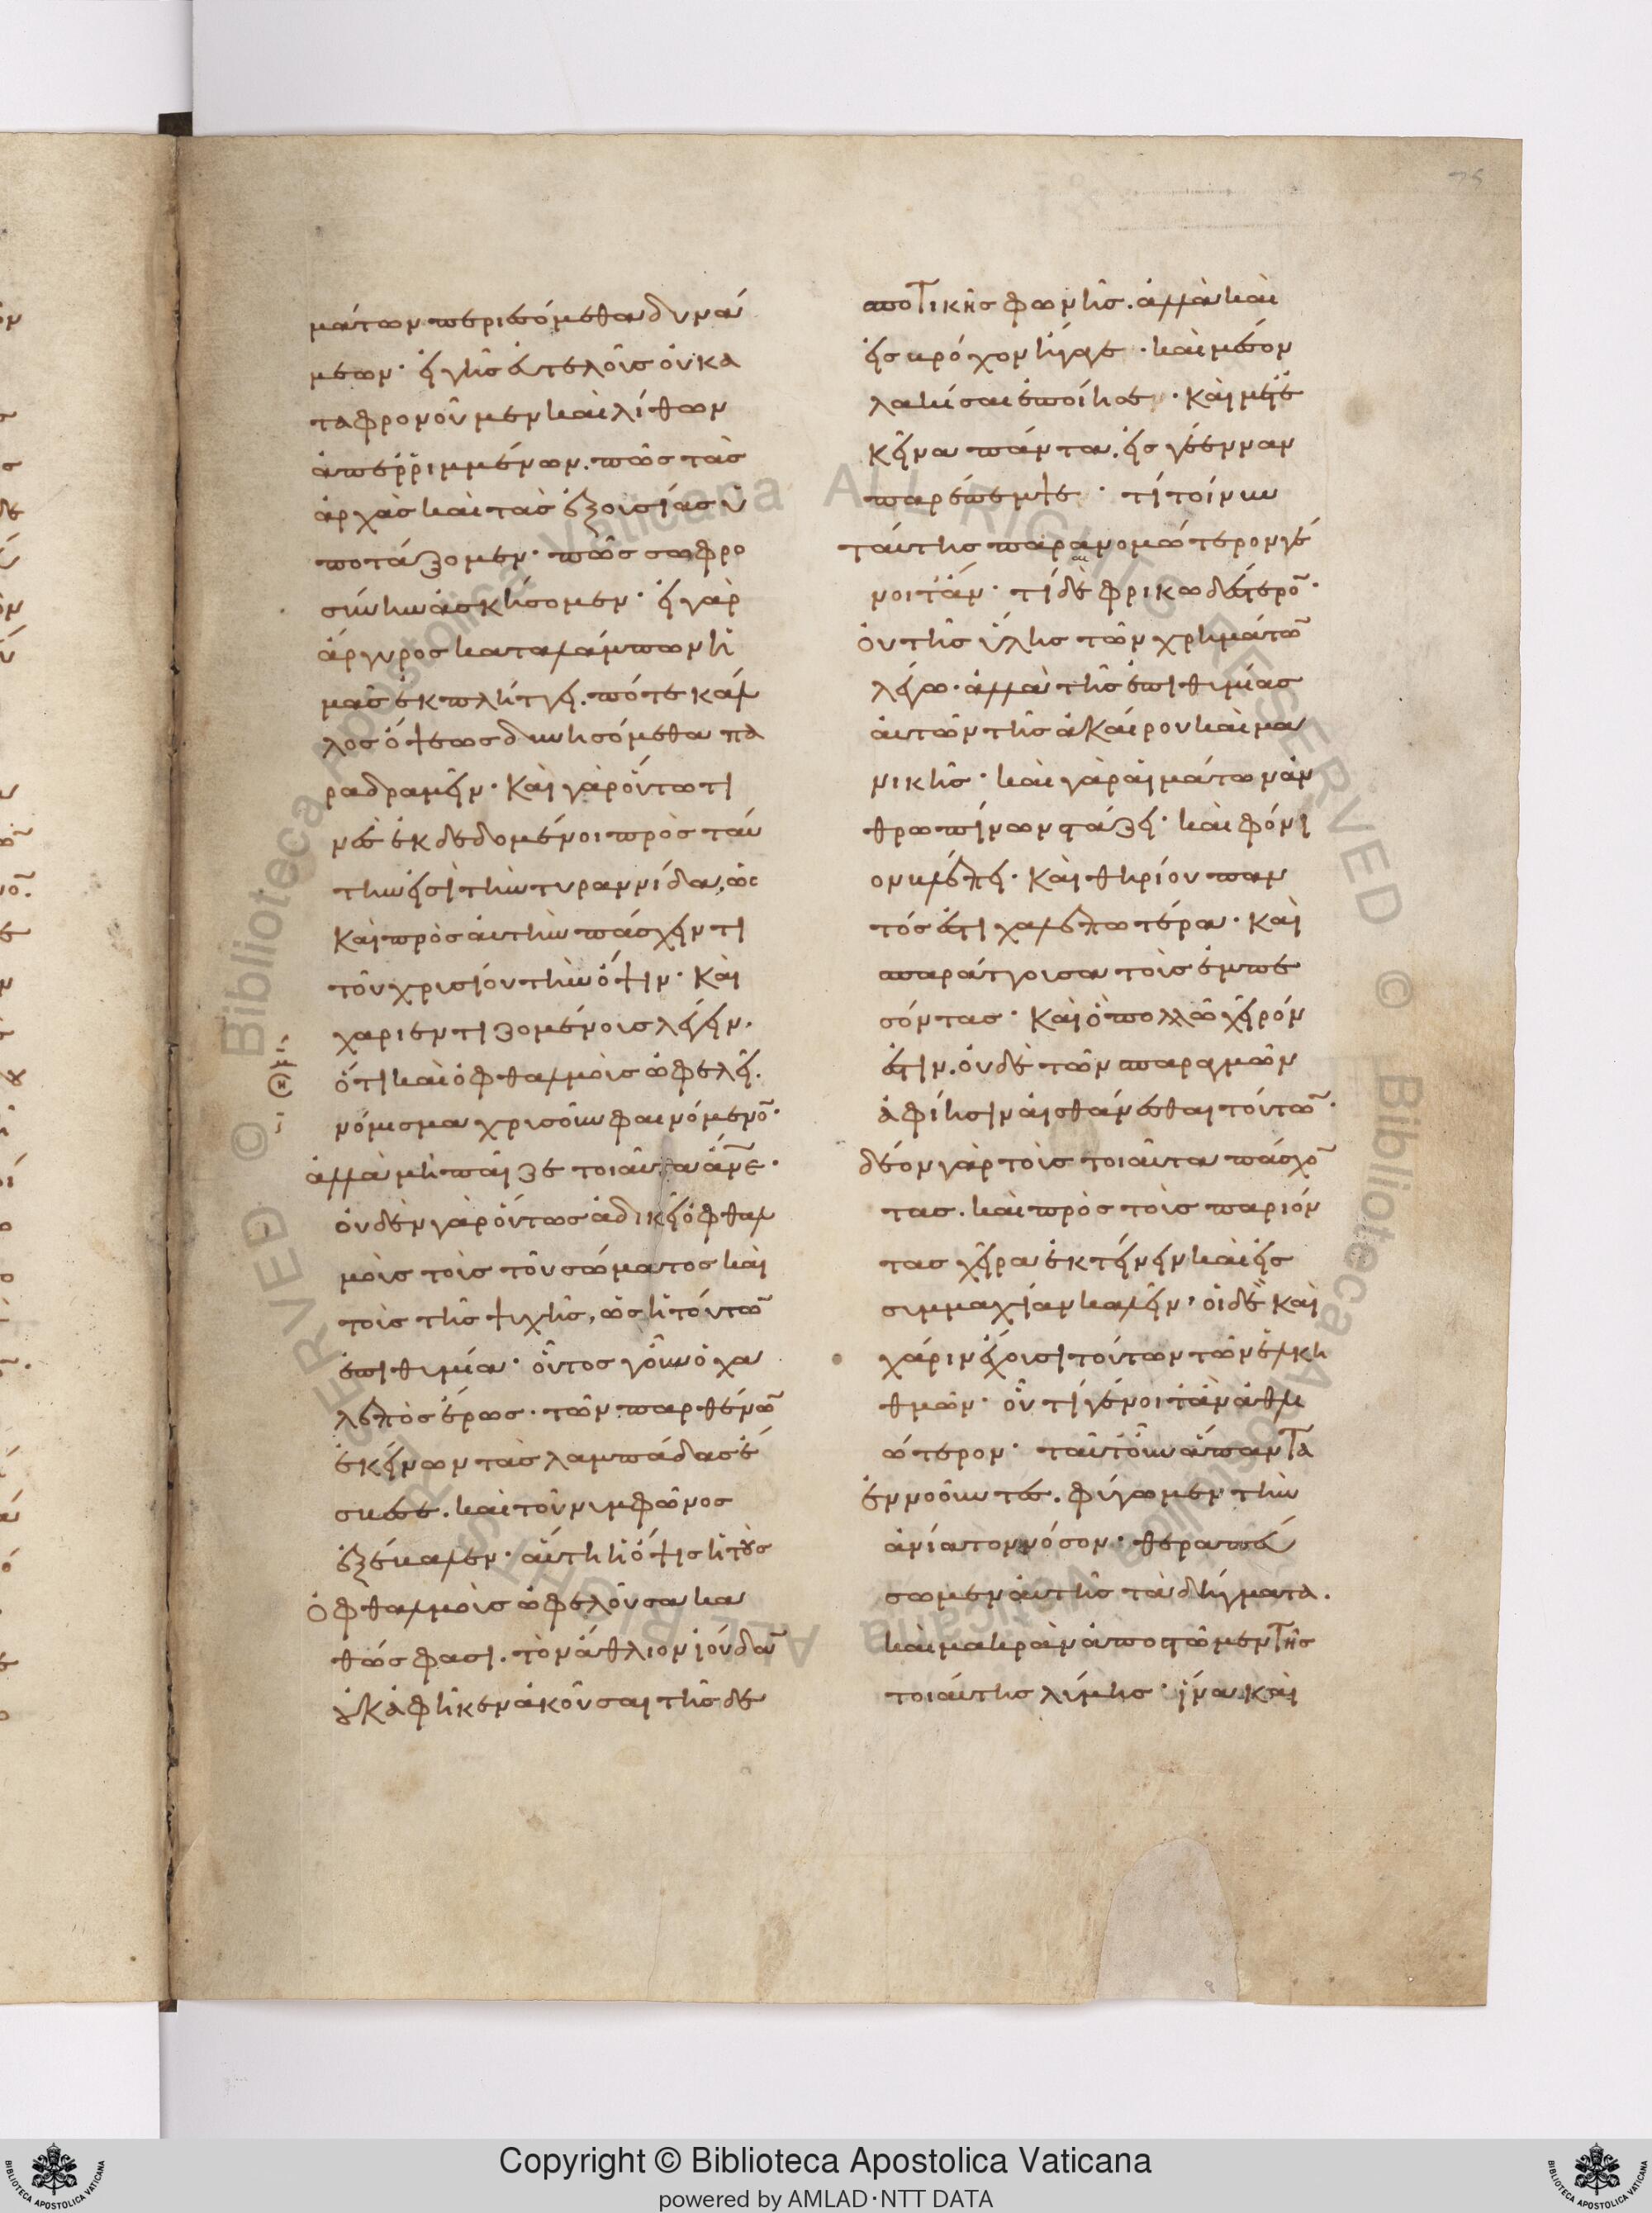 μάτων περιεσόμεθα δυνά
μεων· εἰ γῆς εὐτελοῦς οὐ κα
ταφρονοῦμεν καὶ λίθων
ἀπερριμμένων. πῶς τὰς
ἀρχὰς καὶ τὰς ἐξουσίας ὑ
ποτάξομεν· πῶς σωφρο
σύνην ἀσκήσομεν· εἰ γὰρ
ἄργυρος καταλάμπων ἡ
μᾶς ἐκπλήττει. πότε κάλ
λος ὄψεως δυνησόμεθα πα
ραδραμεῖν· Καὶ γὰρ οὕτω τι
νὲς ἐκδεδομένοι πρὸς ταύ
την εἰσὶ τὴν τυραννίδα, ὡς
καὶ πρὸς αὐτὴν πάσχειν τι
τοῦ χρυσίου τὴν ὄψιν· Καὶ
χαριεντιζομένους λέγειν.
ὅτι καὶ ὀφθαλμοὺς ὠφελεῖ.
νόμισμα χρυσοῦν φαινόμενο̅·
ἀλλὰ μὴ παῖζε τοιαῦτα ἄν̅ε·
οὐδὲν γὰρ οὕτως ἀδικεῖ ὀφθαλ
μοὺς τοὺς τοῦ σώματος καὶ
τοὺς τῆς ψυχῆς, ὡς ἡ τούτω̅
ἐπιθυμία· οὗτος γοῦν ὁ χα
λεπὸς ἔρως· τῶν παρθένω̅
ἐκείνων τὰς λαμπάδας ἔ
σβεσε. καὶ τοῦ νυμφῶνος
ἐξέβαλεν· αὕτη ἡ ὄψις ἡ τοὺς
ὀφθαλμοὺς ὠφελοῦσα κα
θώς φασι. τὸν ἄθλιον ἰούδα̅
οὐκ ἀφῆκεν ἀκοῦσαι τῆς δε
σποτικῆς φωνῆς. ἀλλὰ καὶ
εἰς βρόχον ἤγαγε· καὶ μέσον
λακῆσαι ἐποίησε· καὶ μετ' ἐ
κεῖνα πάντα. εἰς γέενναν
παρέπεμψε· τί τοίνυν
ταύτης παρανομώτερον γέ
νοιτ' ἄν· τί δὲ φρικωδέστερο̅·
οὐ τῆς ὕλης τῶν χρημάτω̅
λέγω· ἀλλὰ τῆς ἐπιθυμίας
αὐτῶν τῆς ἀκαίρου καὶ μα
νικῆς· καὶ γὰρ αἱμάτων ἀν
θρωπίνων στάζει· καὶ φόνι
ον βλέπει· Καὶ θηρίου παν
τός ἐστι χαλεπωτέρα· Καὶ
σπαράττουσα τοὺς ἐμπε
σόντας· Καὶ ὃ πολλῶ χεῖρόν
ἐστιν. οὐδὲ τῶν σπαραγμῶν
ἀφίησιν αἰσθάνεσθαι τούτω̅·
δέον γὰρ τοὺς τοιαῦτα πάσχο̅
τας. καὶ πρὸς τοὺς παριόν
τας χεῖρα ἐκτείνειν καὶ εἰς
συμμαχίαν καλεῖν· οἱ δὲ καὶ
χάριν ἔχουσι τούτων τῶν ἑλκη
θμῶν· οὗ τί γένοιτ' ἂν ἀθλι
ώτερον· ταῦτ' οὖν ἅπαντα
ἐννοοῦντες. φύγωμεν τὴν
ἀνίατον νόσον· θεραπεύ
σωμεν αὐτῆς τὰ δήγματα.
καὶ μακρὰν ἀποστῶμεν τῆς
τοιαύτης λύμης· ἵνα καὶ
Copyright © Biblioteca Apostolica Vaticana
powered by AMLAD·NTT DATA